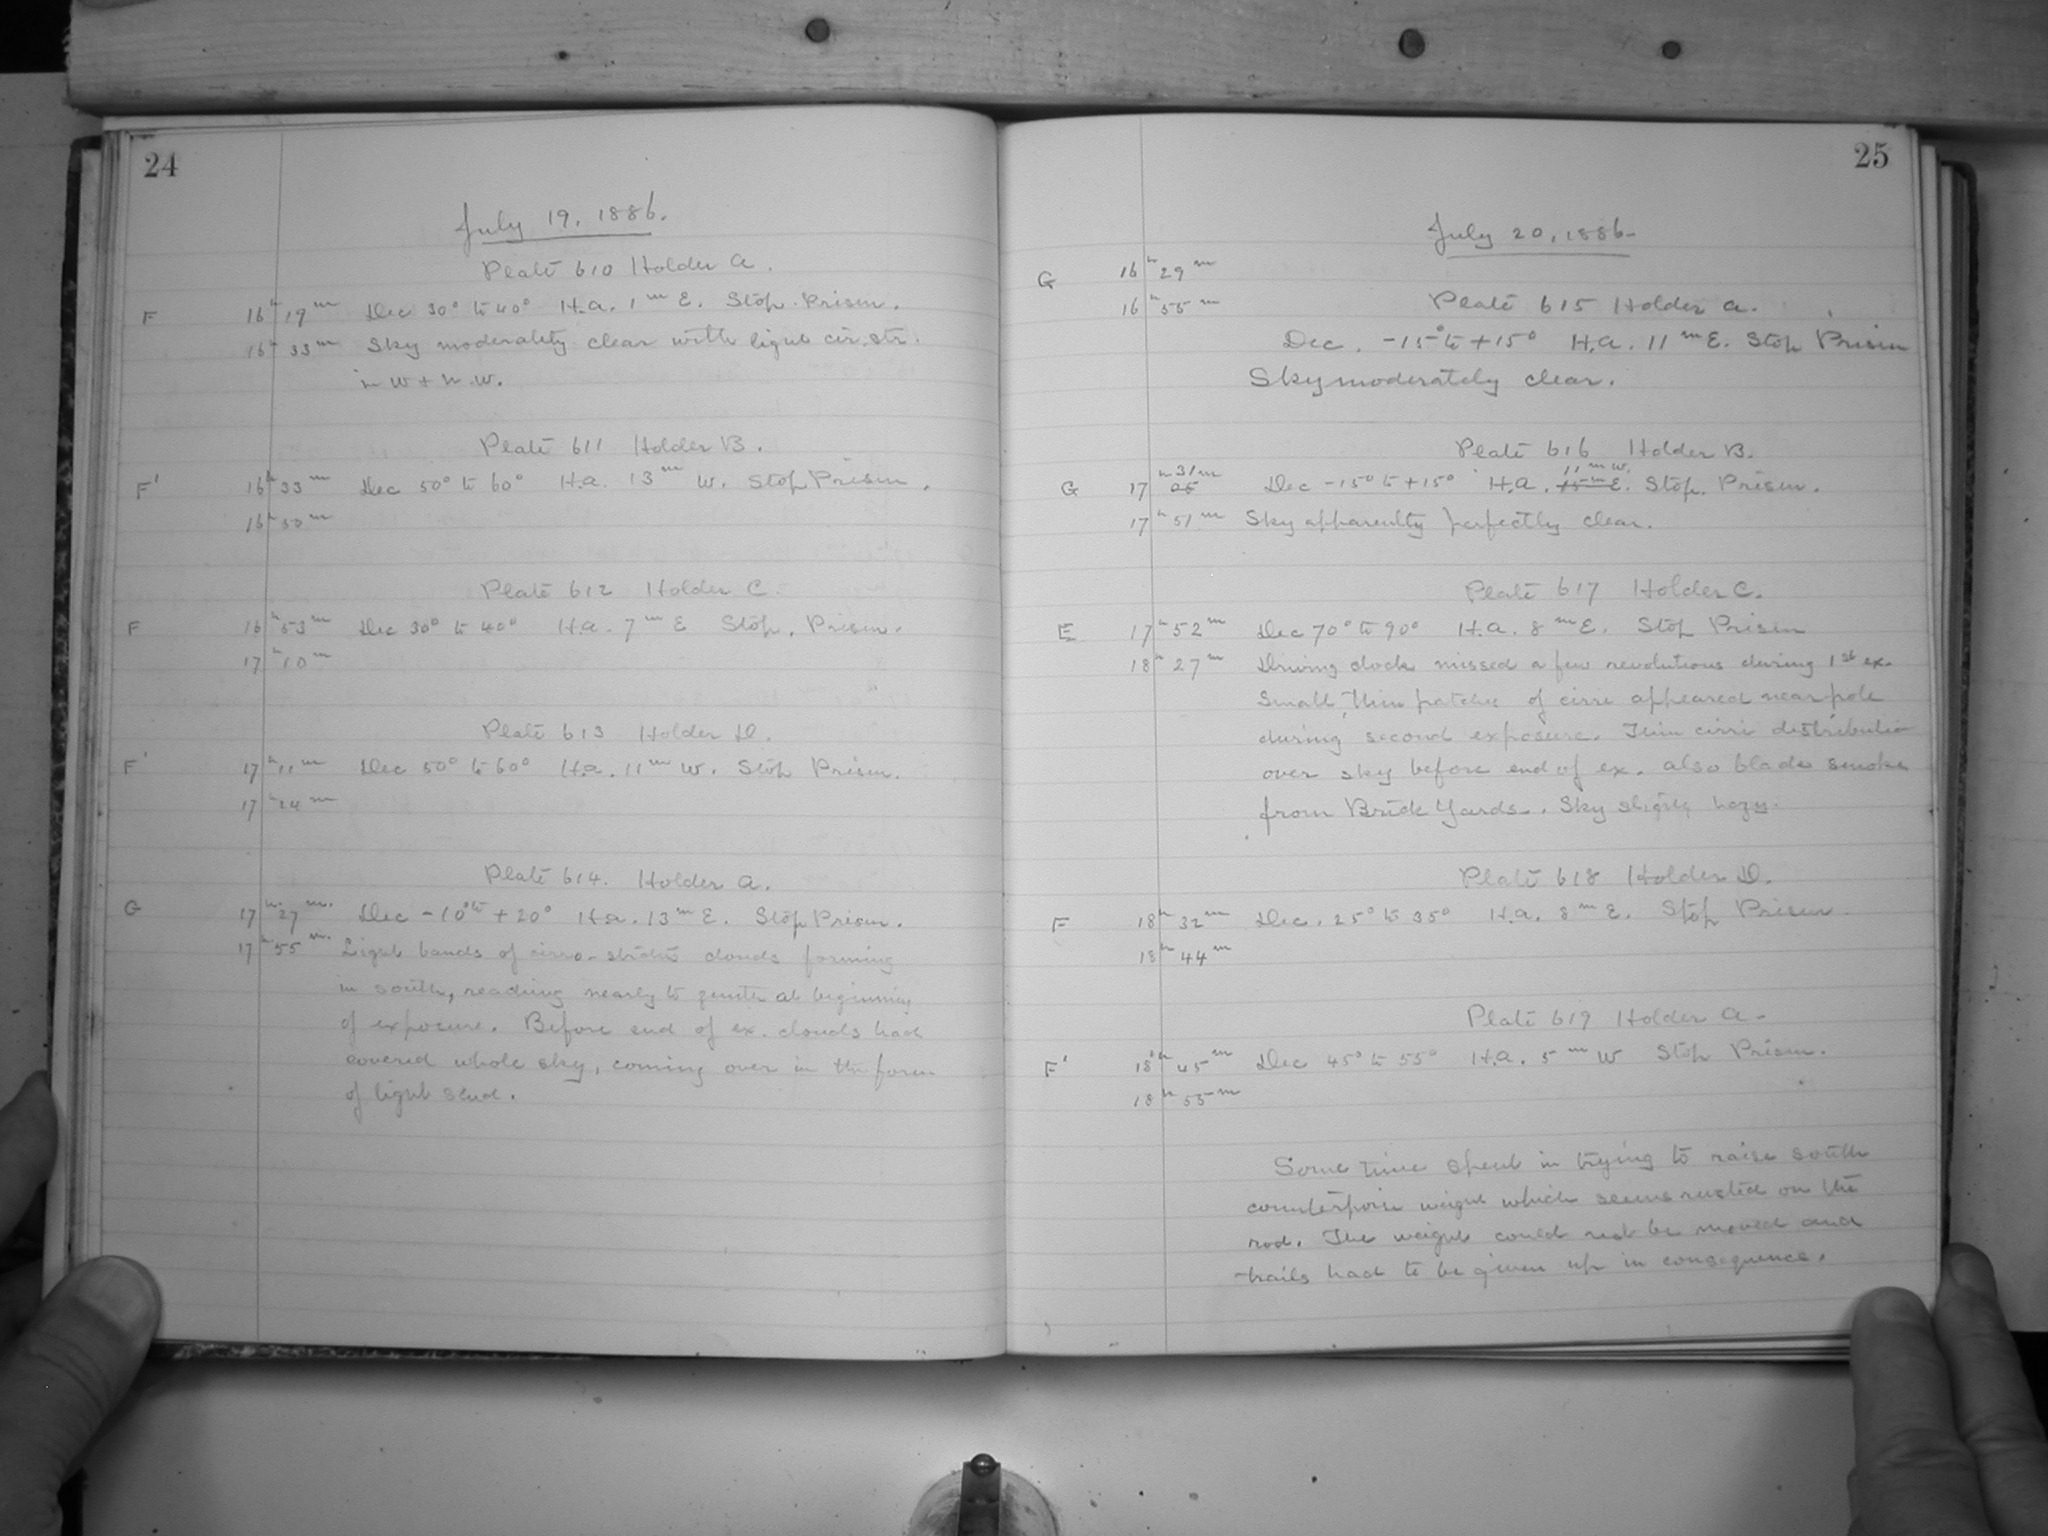 24
July 19, 1886.
Plate 610 Holder A.
F 16h 19m Dec 30° to 40° H.A. 1m E. Stop. Prism.
16h 33m Sky moderately clear with light cir. str.
in W + N.W.
Plate 611 Holder B.
F' 16h 33m Dec 50° to 60° H.A. 13m W. Stop Prism.
16h 50m
Plate 612 Holder C.
F 16h 53m Dec 30° to 40° H.A. 7m E Stop. Prism.
17h 10m
Plate 613 Holder D.
F' 17h 11m Dec 50° to 60° H.A. 11m W. Stop Prism.
17h 24m
Plate 614. Holder A.
G 17h 27m. Dec -10° to +20° H.A. 13m E. Stop Prism.
17h 55m. Light bands of cirro-strati clouds forming
in south, reaching nearly to zenith at beginning
of exposure. Before end of ex. clouds had
covered whole sky, coming over in the form
of light scud.
25
July 20, 1886-
G 16h 29m
16h 55m Plate 615 Holder A.
Dec. -15° to +15° H.A. 11m E. Stop Prism
Sky moderately clear.
Plate 616 Holder B.
11m W.
G 17h 31m 05 Dec -15° to +15° H.A. 15m E. Stop. Prism.
17h 51m Sky apparently perfectly clear.
Plate 617 Holder C.
E 17h 52m Dec 70° to 90° H.A. 8m E. Stop Prism
18h 27m Driving clock missed a few revolutions during 1st ex.
Small, thin patches of cirri appeared near pole
during second exposure. Thin cirri
over sky before end of ex. also black smoke
from Brick Yards. Sky slightly hazy.
Plate 618 Holder D.
F 18h 32m Dec. 25° to 35° H.A. 8m E. Stop Prism
18h 44m
Plate 619 Holder A-
F' 18h 45m Dec 45° to 55° H.A. 5m W Stop Prism.
18h 55m
Some time spent in trying to raise south
counterpoise weight which seems rusted on the
rod. The weight could not be moved and
trails had to be given up in consequence.